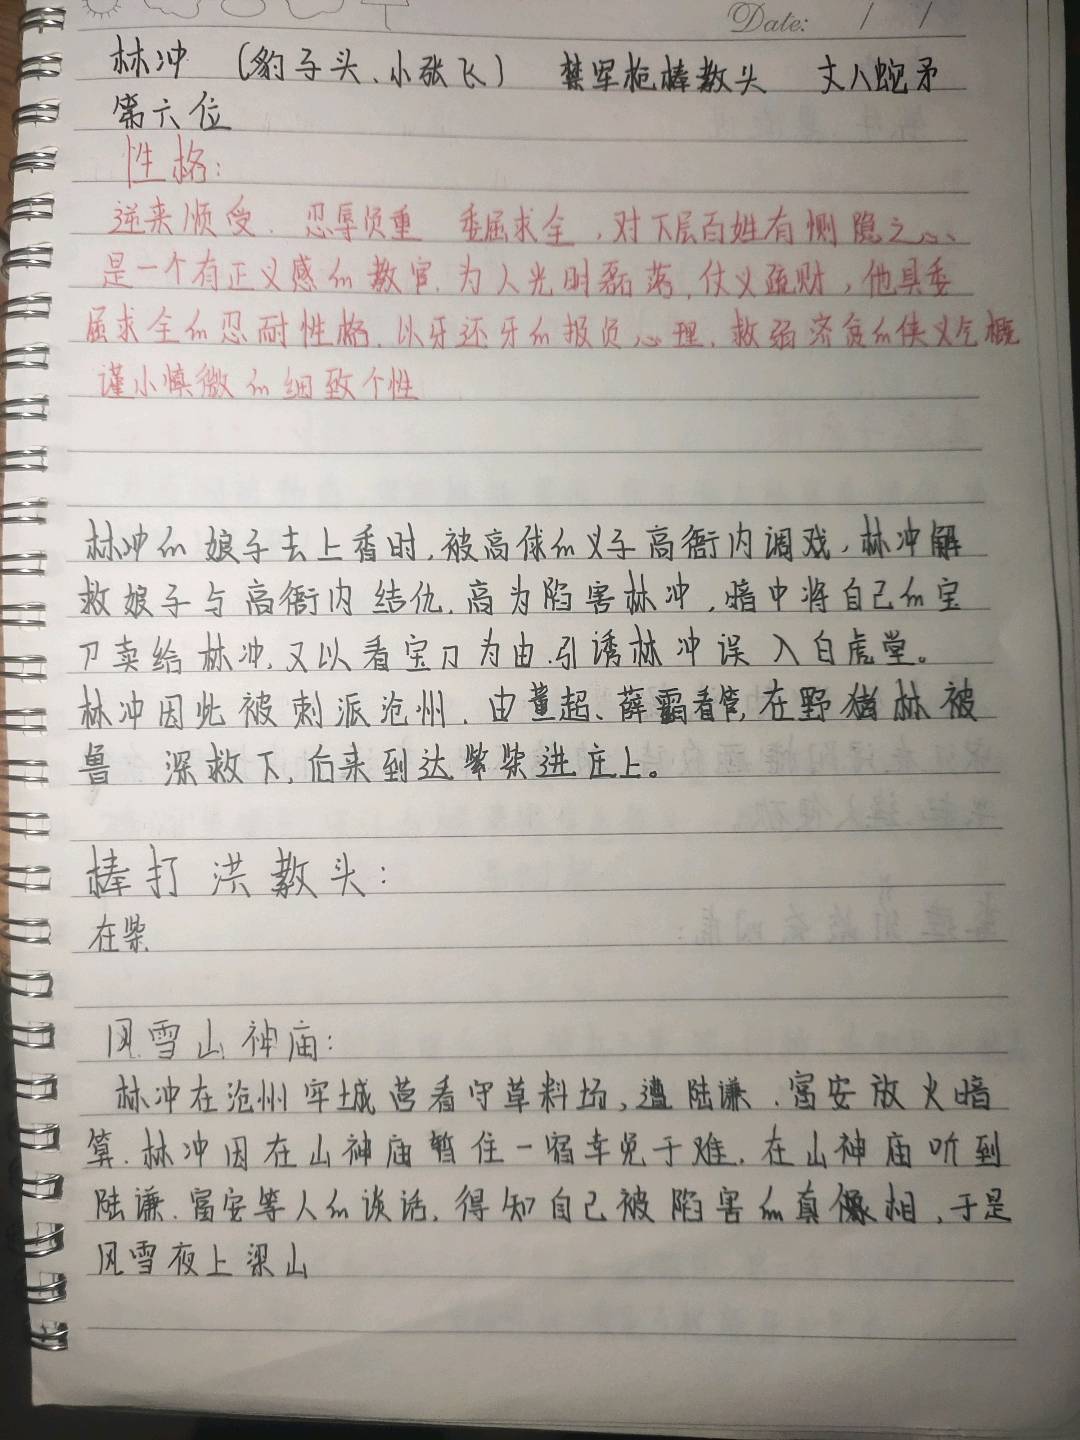 Date: / /
林冲 (豹子头、小张飞) 禁军枪棒教头 丈八蛇矛
第六位
性格:
逆来顺受、忍辱负重 委屈求全,对下层百姓有恻隐之心、
是一个有正义感的教官,为人光明磊落,仗义疏财,他具委
屈求全的忍耐性格,以牙还牙的报负心理,救弱济贫的侠义气概
谨小慎微的细致个性
林冲的娘子去上香时,被高俅的义子高衙内调戏,林冲解
救娘子与高衙内结仇,高为陷害林冲,暗中将自己的宝
刀卖给林冲,又以看宝刀为由,引诱林冲误入白虎堂。
林冲因此被刺派沧州,由董超、薛霸看管,在野猪林被
鲁 深救下,后来到达柴进庄上。
棒打洪教头:
在柴
风雪山神庙:
林冲在沧州牢城营看守草料场,遭陆谦、富安放火暗
算,林冲因在山神庙暂住一宿幸免于难,在山神庙听到
陆谦、富安等人的谈话,得知自己被陷害的真相,于是
风雪夜上梁山